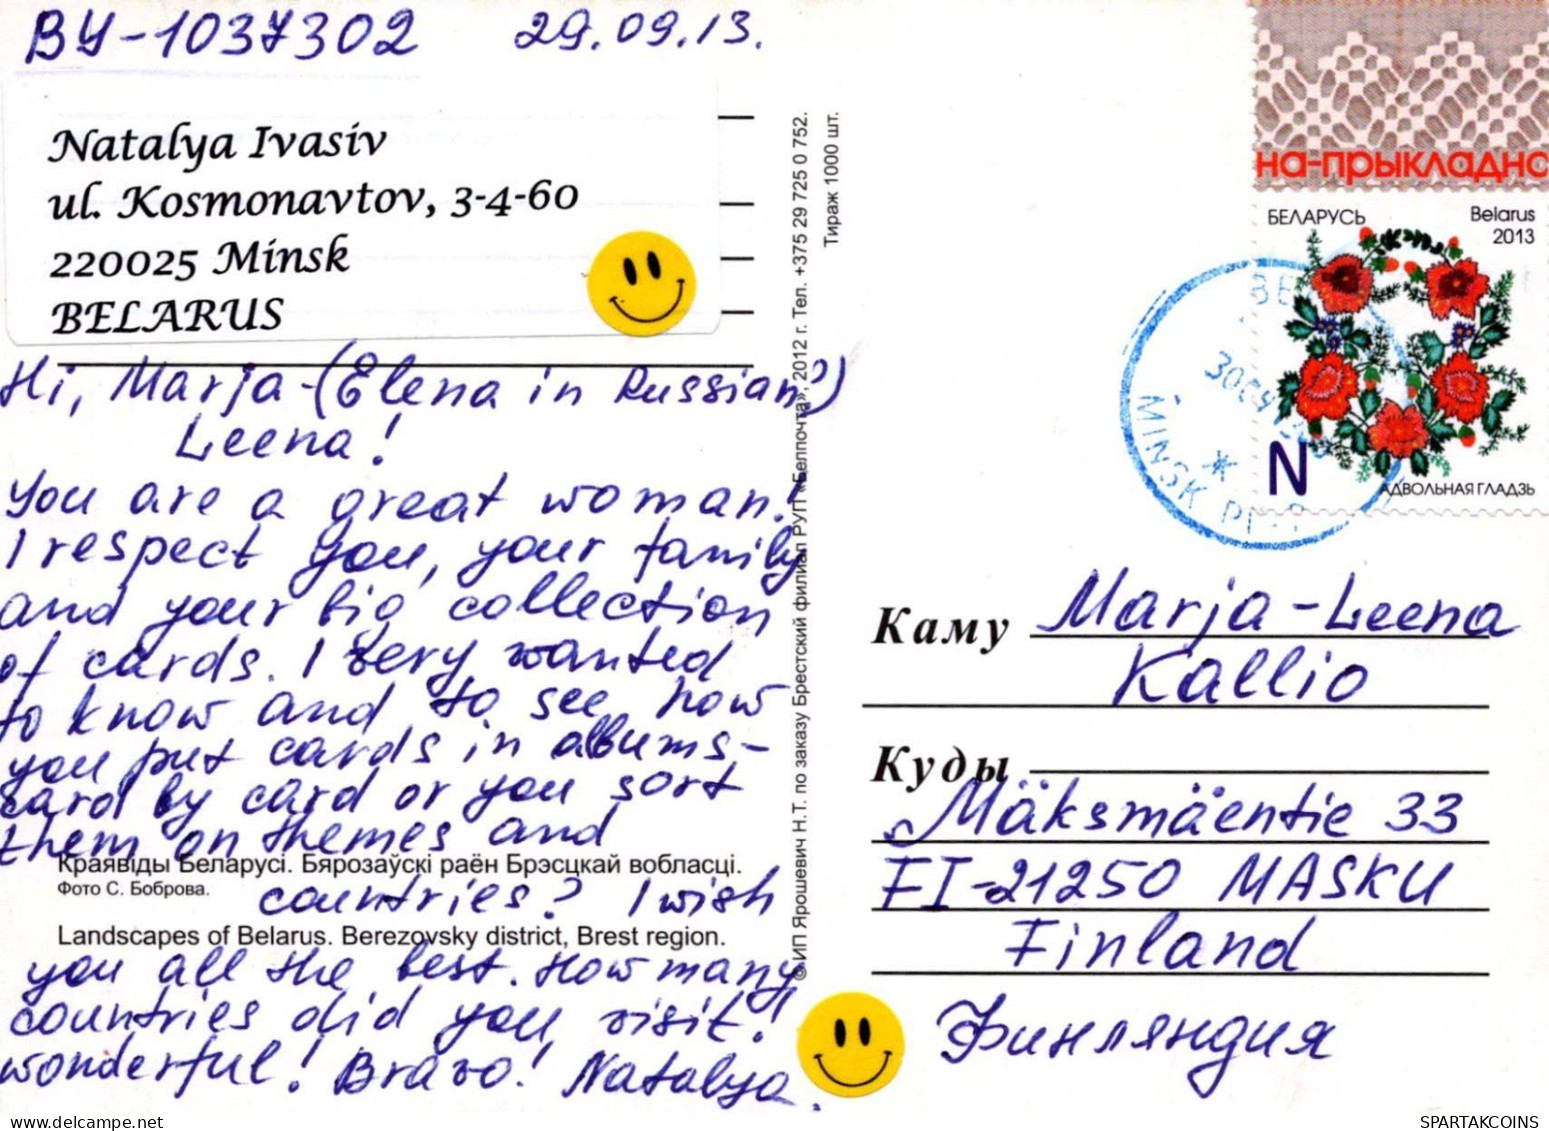 BY-1037302 29.09.13.
Natalya Ivasiv
ul. Kosmonavtov, 3-4-60
220025 Minsk
BELARUS
Hi, Marja-(Elena in Russian?)
Leena!
You are a great woman!
I respect you, your family
and your big collection
of cards. I very wanted
to know and to see how
you put cards in albums-
card by card or you sort
them on themes and
Краявіды Беларусі. Бярозаўскі раён Брэсцкай вобласці.
Фото С. Боброва.
countries? I wish
Landscapes of Belarus. Berezovsky district, Brest region.
you all the best. How many
countries did you visit!
wonderful! Bravo! Natalya.
© ИП Ярошевич Н.Т. по заказу Брестский филиал РУП «Белпочта», 2012 г. Тел. +375 29 725 0 752.
Тираж 1000 шт.
на-прыкладно
БЕЛАРУСЬ Belarus
2013
N
АДВОЛЬНАЯ ГЛАДЗЬ
MINSK
Каму Marja-Leena
Kallio
Куды
Mäksmäentie 33
FI-21250 MASKU
Finland
Финляндия
delcampe.net
SPARTAKCOINS